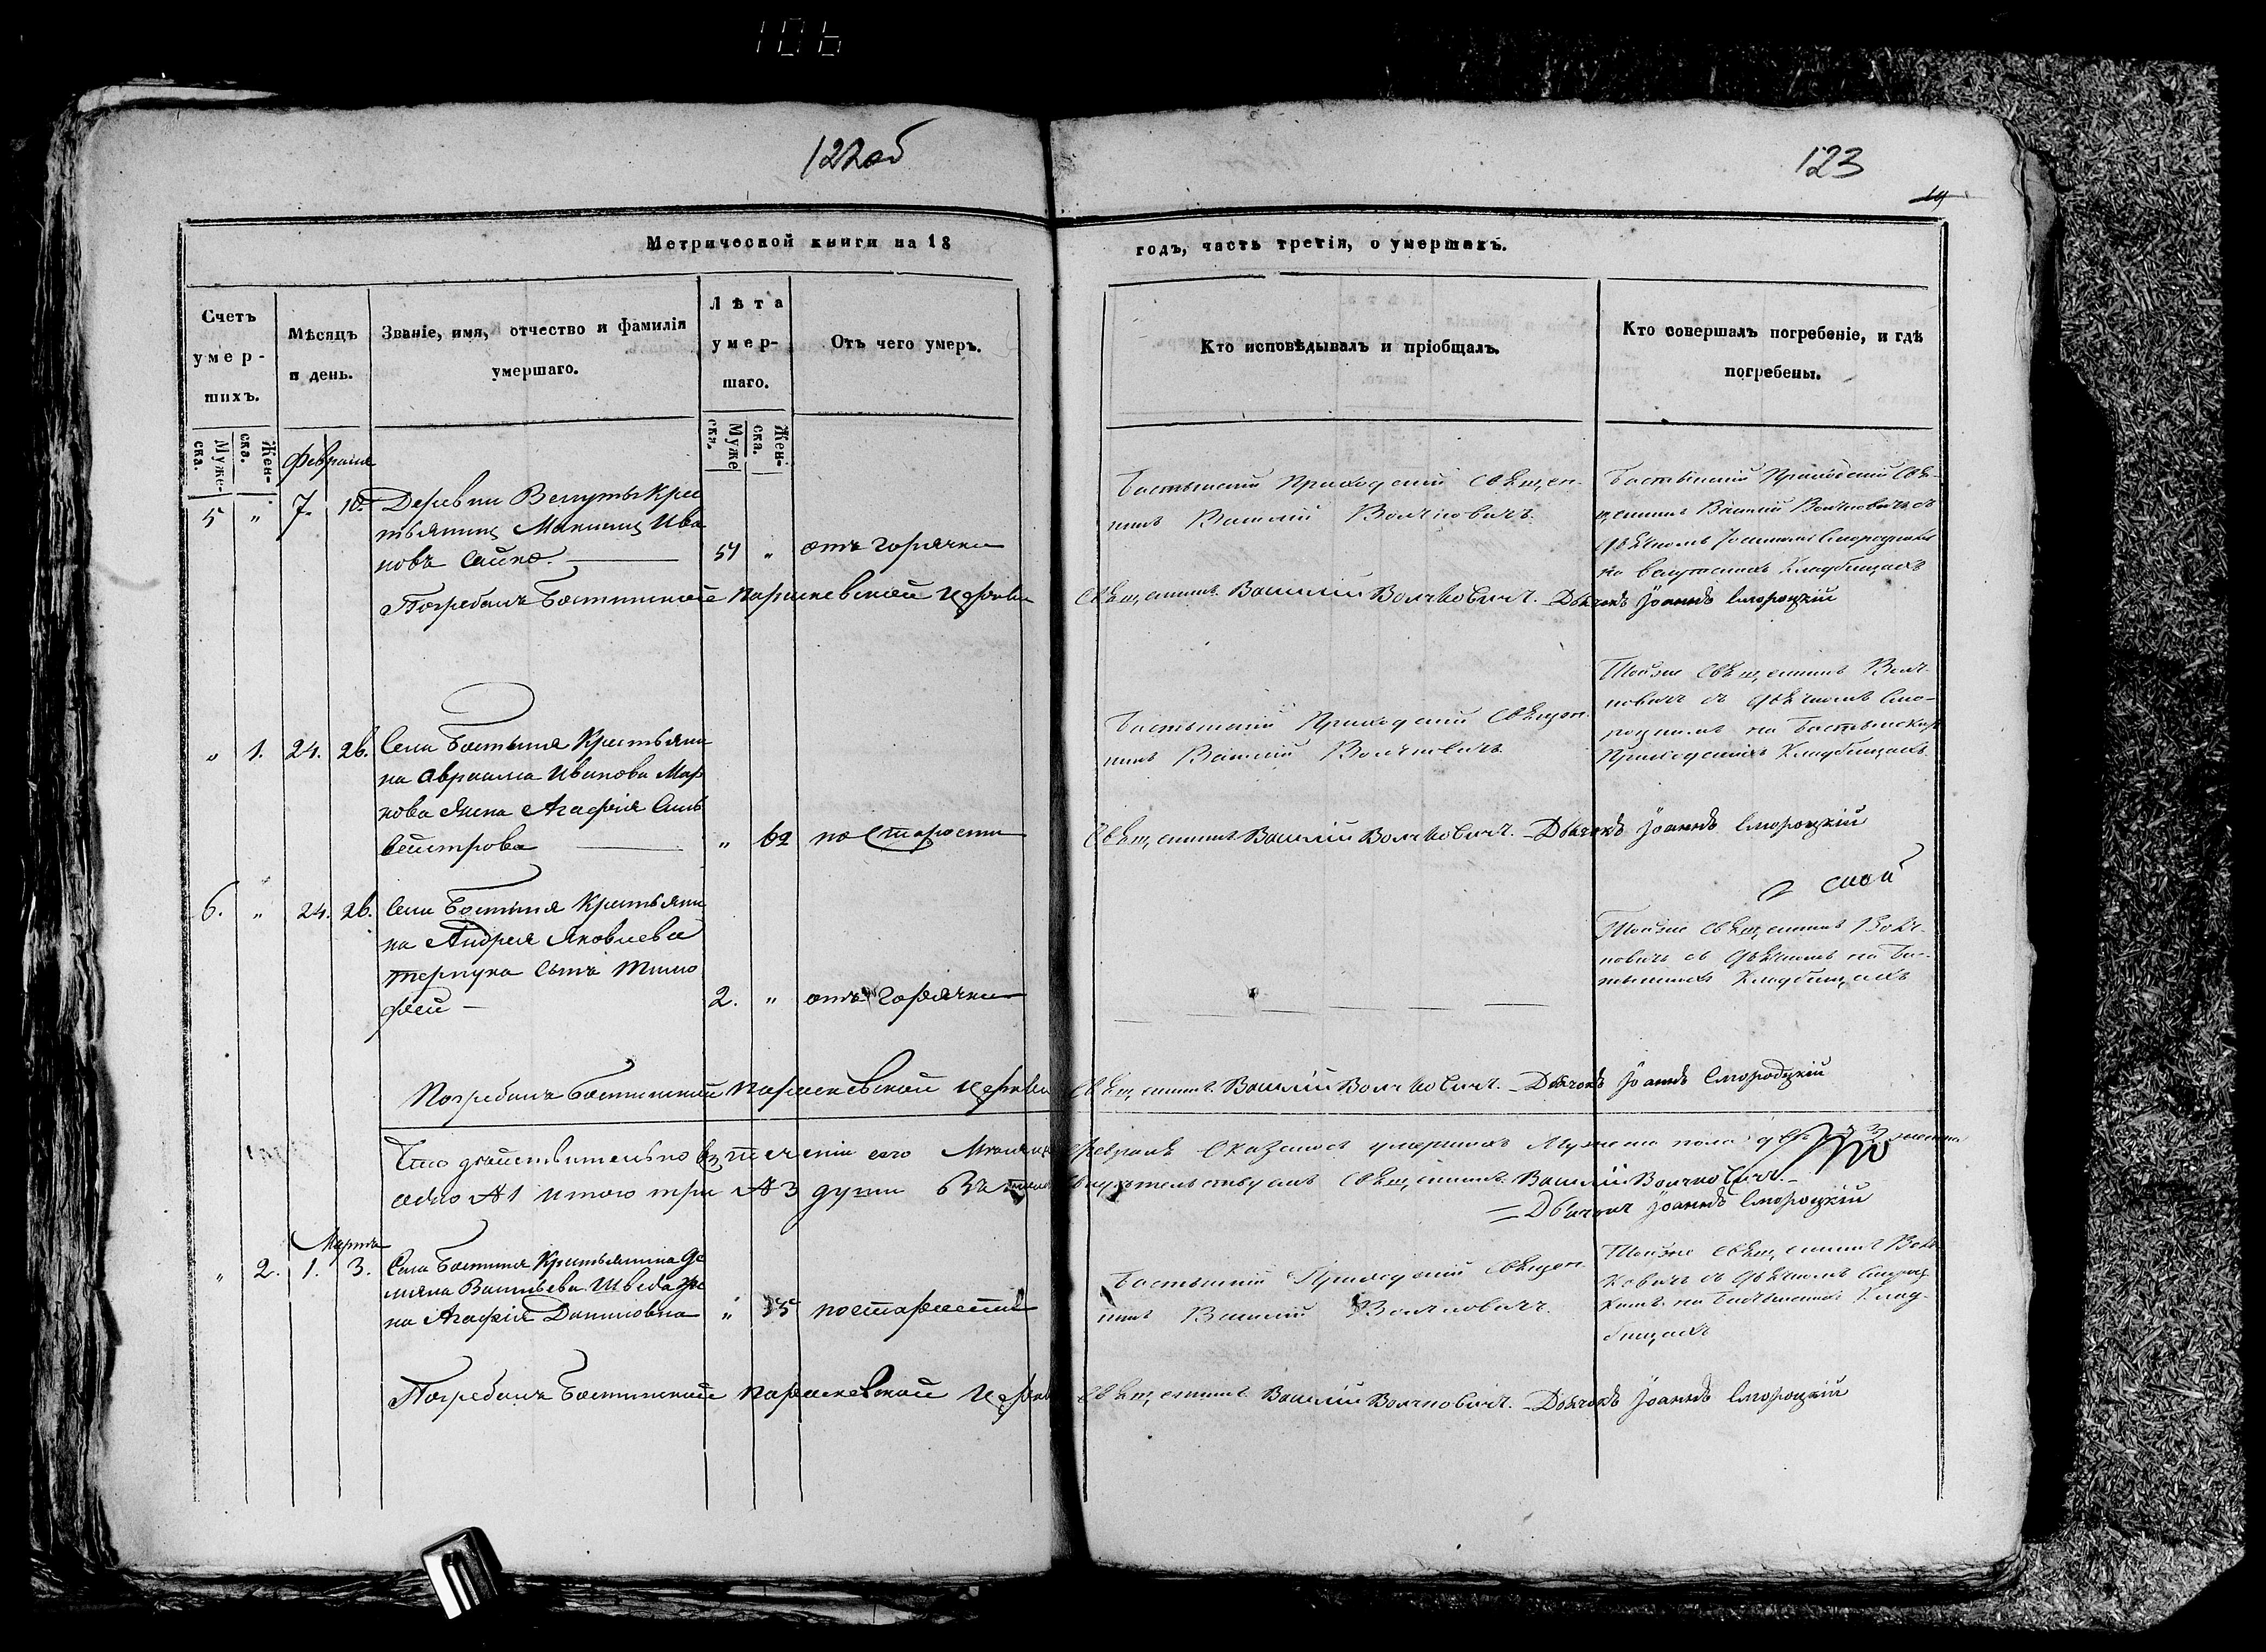 106
122об
123
19
Метрической книги на 18
годъ, часть третія, о умершихъ.
Счетъ умершихъ.
Мѣсяцъ и день.
Званіе, имя, отчество и фамилія умершаго.
Лѣта умершаго.
Отъ чего умеръ.
Кто исповѣдывалъ и пріобщалъ.
Кто совершалъ погребеніе, и гдѣ погребены.
Мужеска. Женска.
Мужеска. Женска.
Февраля
5 " 7. 10. Деревни Велуты Крес
тьянинъ Максимъ Ива
новъ Сайко. 54 " отъ горячки
Священ
никъ Василій Волчковичъ
Приходскій Свя
щенникъ Василій Волчковичъ съ
дьячкомъ
на Кладбищахъ
Погребалъ Бостынской Параскевской Церкви Священникъ Василій Волчковичъ. Дьячокъ Іоаннъ Смороцкій
" 1. 24. 26. Села Бостыня Крестьяни
на Авраама Иванова Мар
кова жена Агафія Силь
вестрова " 62 по старости
Приходскій Священ
никъ Василій Волчковичъ
Тойже Священникъ Волч
ковичъ съ дьячкомъ Смо
на Бостынских
Приходскихъ Кладбищахъ
Священникъ Василій Волчковичъ. Дьячокъ Іоаннъ Смороцкій
6. " 24. 26. Села Бостыня Крестьяни
на Андрея Яковлева
сынъ Тимо
фей 2. " отъ горячки
Тойже Священникъ Волч
ковичъ съ дьячкомъ на Бо
Кладбищахъ
Погребалъ Бостынской Параскевской Церкви Священникъ Василій Волчковичъ. Дьячокъ Іоаннъ Смородцкій
Что дѣйствительно въ теченіи сего Месяца Февраля оказалось умершихъ Мужеска пола два
одно № 1 итого три № 3 души въ томъ свидѣтельствуемъ Священникъ Василій Волчковичъ.
Дьячокъ Іоаннъ Смороцкій
Марта
" 2. 1. 3. Села Бостыня Крестьянина Де
мьяна Васильева Шведа же
на Агафія Даниловна " 55 по старости
Приходскій Священ
никъ Василій Волчковичъ.
Тойже Священникъ Волч
ковичъ съ дьячкомъ
на Клад
бищахъ
Погребалъ Бостынской Параскевской Церкви Священникъ Василій Волчковичъ. Дьячокъ Іоаннъ Смороцкій